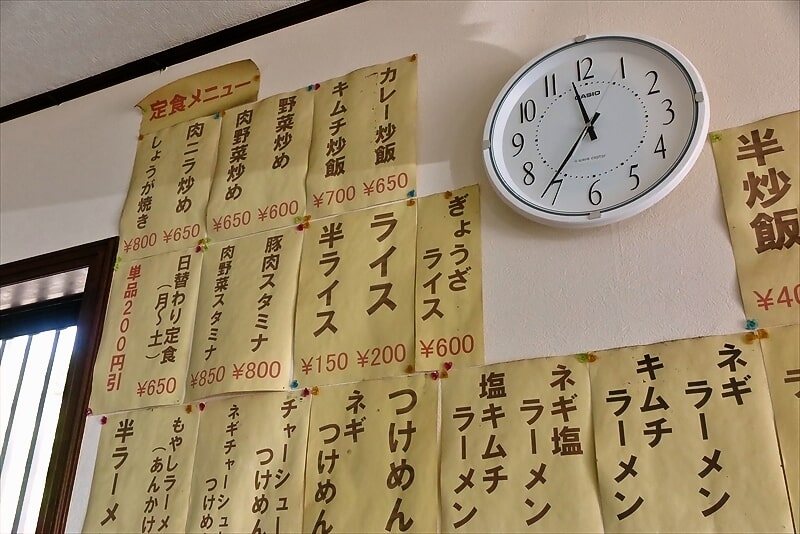 定食メニュー
カレー炒飯
¥650
キムチ炒飯
¥700
野菜炒め
¥600
肉野菜炒め
¥650
肉ニラ炒め
¥650
しょうが焼き
¥800
ぎょうざ
ライス
¥600
ライス
¥200
半ライス
¥150
豚肉スタミナ
¥800
肉野菜スタミナ
¥850
日替わり定食
(月〜土)
¥650
単品200円引
半炒飯
ネギ
ラーメン
キムチ
ラーメン
ネギ塩
ラーメン
塩キムチ
ラーメン
つけめん
ネギ
つけめん
チャーシュー
つけめん
ネギチャーシュー
つけめ
もやしラーメ
(あんかけ
半ラーメ
CASIO
12
1
2
3
4
5
6
7
8
9
10
11